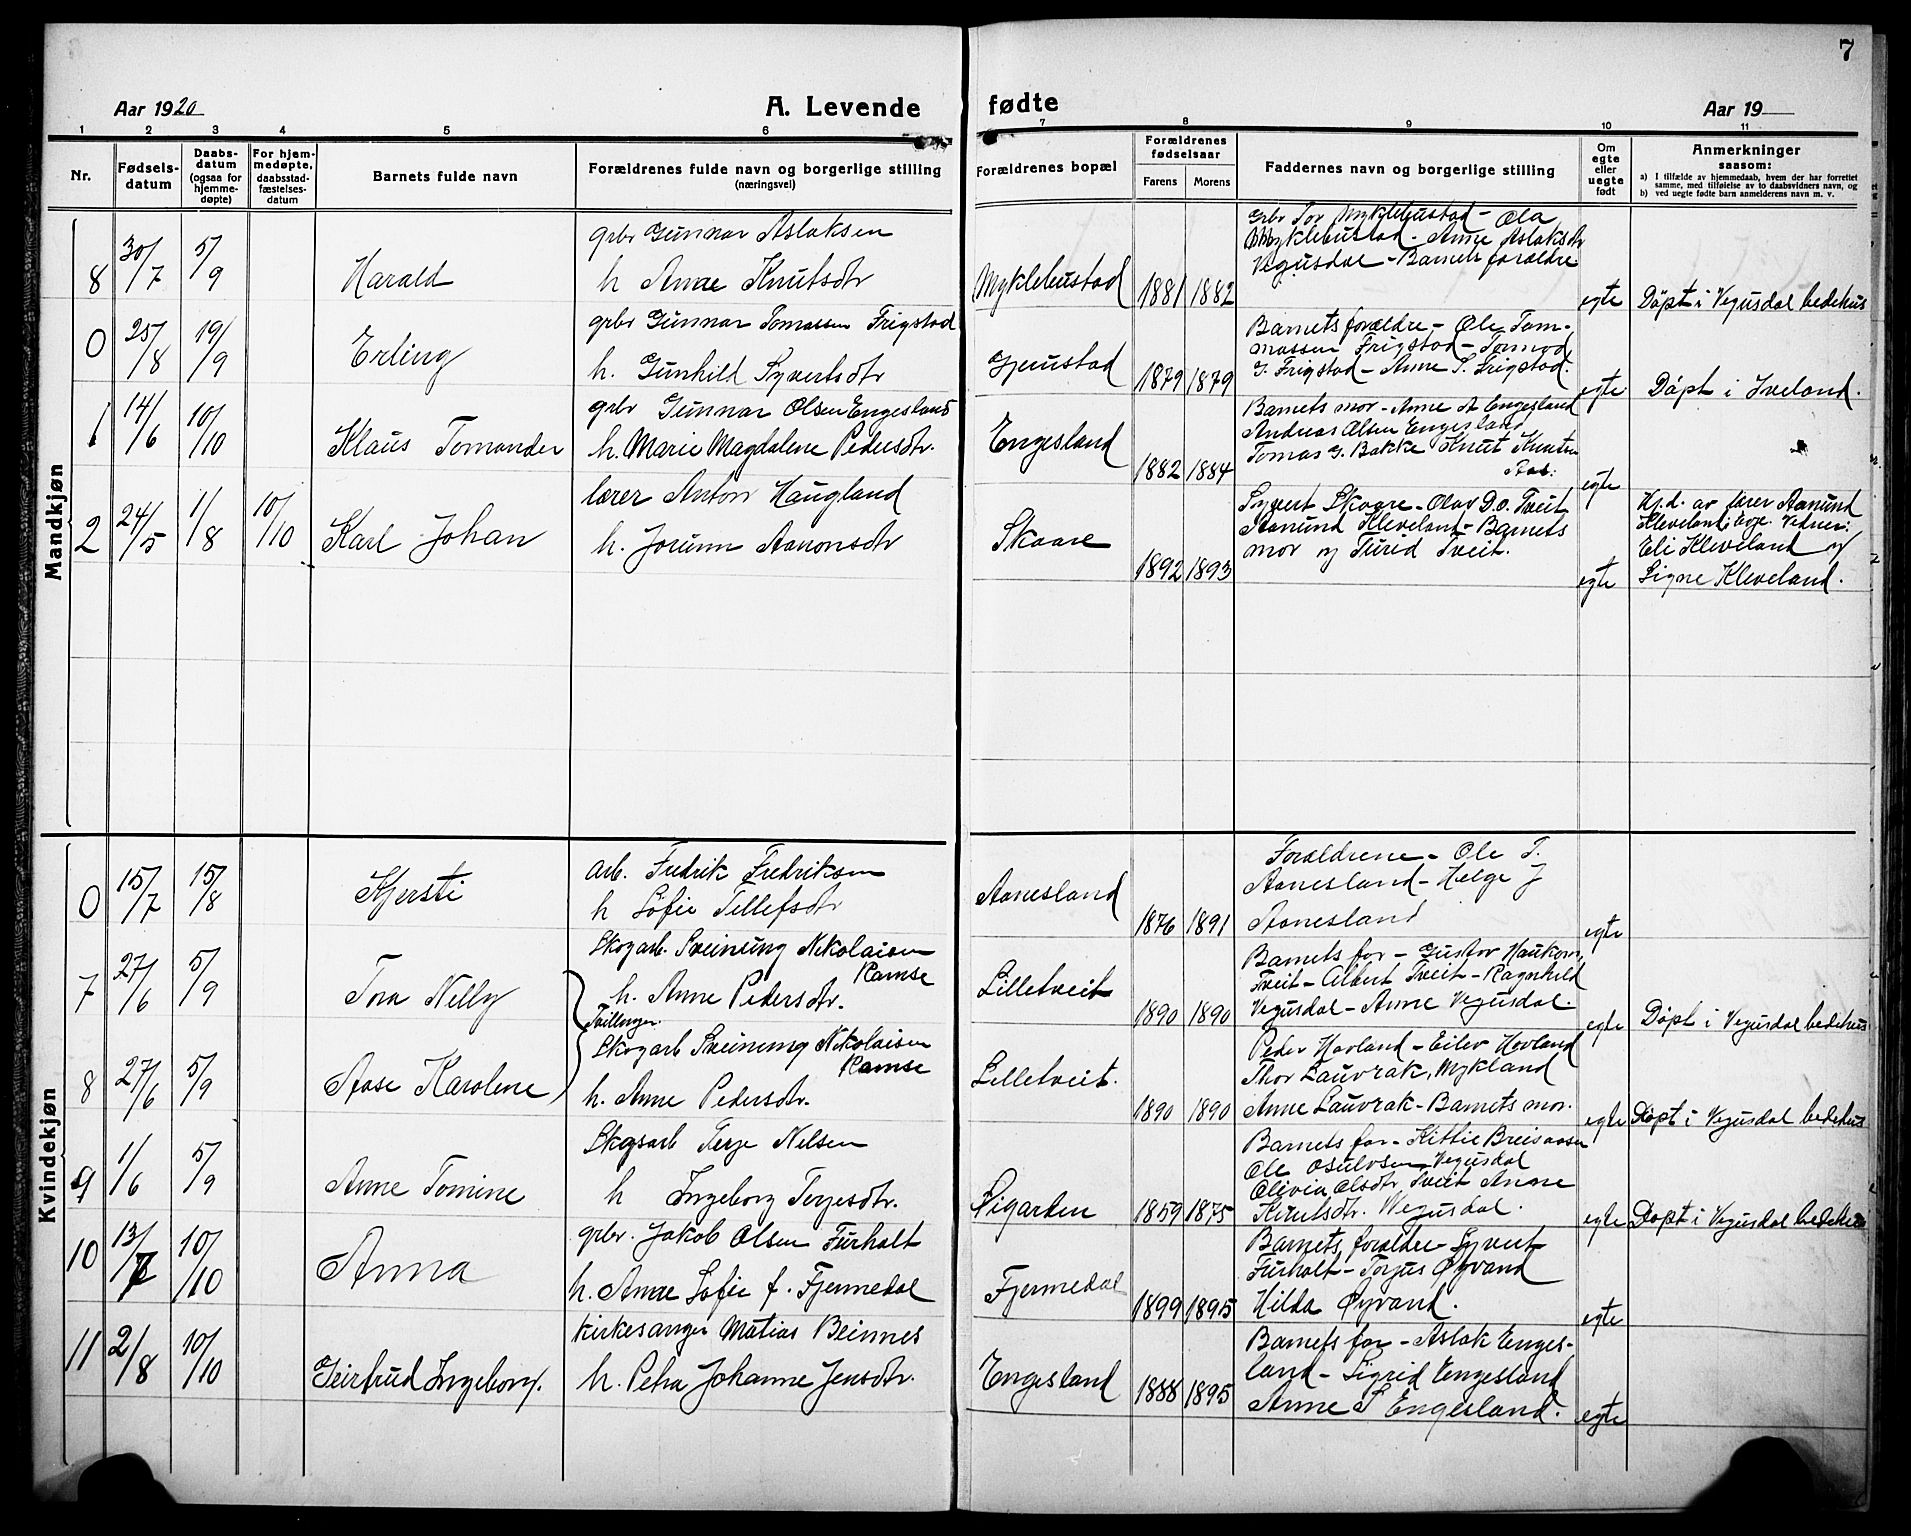 7
Aar 1920
A. Levende
fødte
Aar 19
1 2 3 4 5 6 7 8 9 10 11
Nr.
Fødsels-
datum
Daabs-
datum
(ogsaa for
hjemme-
døpte)
For hjem-
medøpte,
daabsstad-
fæstelses-
datum
Barnets fulde navn
Forældrenes fulde navn og borgerlige stilling
(næringsvei)
Forældrenes bopæl
Forældrenes
fødselsaar
Farens Morens
Faddernes navn og borgerlige stilling
Om
egte
eller
uegte
født
Anmerkninger
saasom:
a) I tilfælde av hjemmedaab, hvem der har forrettet
samme, med tilføielse av to daabsvidners navn, og
b) ved uegte fødte barn anmelderens navn m. v.
Mandkjøn
8 30/7 5/9 Harald
grbr Gunnar Aslaksen
h Anne Knutsdtr
Myklebustad 1881 1882
Grbr Tor Myklebustad - Ola
Myklebustad. Anne Aslaksdtr
Vegusdal - Barnets forældre
egte Döpt i Vegusdal bedehus
0 25/8 19/9 Erling
grbr Gunnar Tomassen Frigstad
h. Gunhild Syvertsdtr
Gjerustad 1879 1879
Barnets forældre - Ole Tom-
massen Frigstad - Tormod
G. Frigstad - Anne S. Frigstad.
egte Döpt i Iveland.
1 14/6 10/10 Klaus Tomander
grbr Gunnar Olsen Engesland
h. Marie Magdalene Pedersdtr.
Engesland 1882 1884
Barnets mor - Anne A Engesland
Andreas Olsen Engesland
Tomas G. Bakke Knut Knutsen
Aas.
egte
2 24/5 1/8 10/10 Karl Johan
lærer Anton Haugland
h. Jorunn Aanonsdtr
Skaare 1892 1893
Syvert Skaare - Olav D. O. Tveit
Aanund Kleveland - Barnets
mor og Turid Tveit.
egte
Hj.d. av lærer Aanund
Kleveland, Vidner:
Eli Kleveland og
Signe Kleveland.
Kvindekjøn
0 15/7 15/8 Kjersti
arb. Fredrik Fredriksen
h Sofie Tellefsdtr
Aanesland 1876 1891
Forældrene - Ole T.
Aanesland - Helge J
Aanesland
egte
7 27/6 5/9 Tora Nelly
Skogarb. Sveinung Nikolaisen
Ramse
h. Anne Pedersdtr.
Tvillinger.
Lilletveit 1890 1890
Barnets far - Gustav Haukom,
Tveit - Albert Tveit - Ragnhild
Vegusdal - Anne Vegusdal.
egte Döpt i Vegusdal bedehus
8 27/6 5/9 Aase Karolene
Skogarb Sveinung Nikolaisen
Ramse
h. Anne Pedersdtr.
Lilletveit. 1890 1890
Peder Hovland - Eilev Hovland
Thor Lauvrak, Mykland
Anne Lauvrak - Barnets mor.
egte Döpt i Vegusdal bedehus
9 1/6 5/9 Anne Tomine
Skogsarb Terje Nelsen
h Ingeborg Terjesdtr.
Øigarden 1859 1875
Barnets far - Kittie Breisaasen
Ole Osulvsen Vegusdal
Olivia Olsdtr Tveit Anne
Knutsdtr. Vegusdal.
egte Döpt i Vegusdal bedehus
10 13/7 10/10 Anna
grbr. Jakob Olsen Furholt
h. Anne Sofie f. Fjermedal
Fjermedal 1899 1895
Barnets forældre - Syvert
Furholt - Torjus Øyvand
Hilda Øyvand.
egte
11 2/8 10/10 Geirtrud Ingeborg.
kirkesanger Matias Beinnes
h. Petra Johanne Jensdtr.
Engesland 1888 1895
Barnets far - Aslak Enges-
land - Sigrid Engesland
Anne S Engesland.
egte